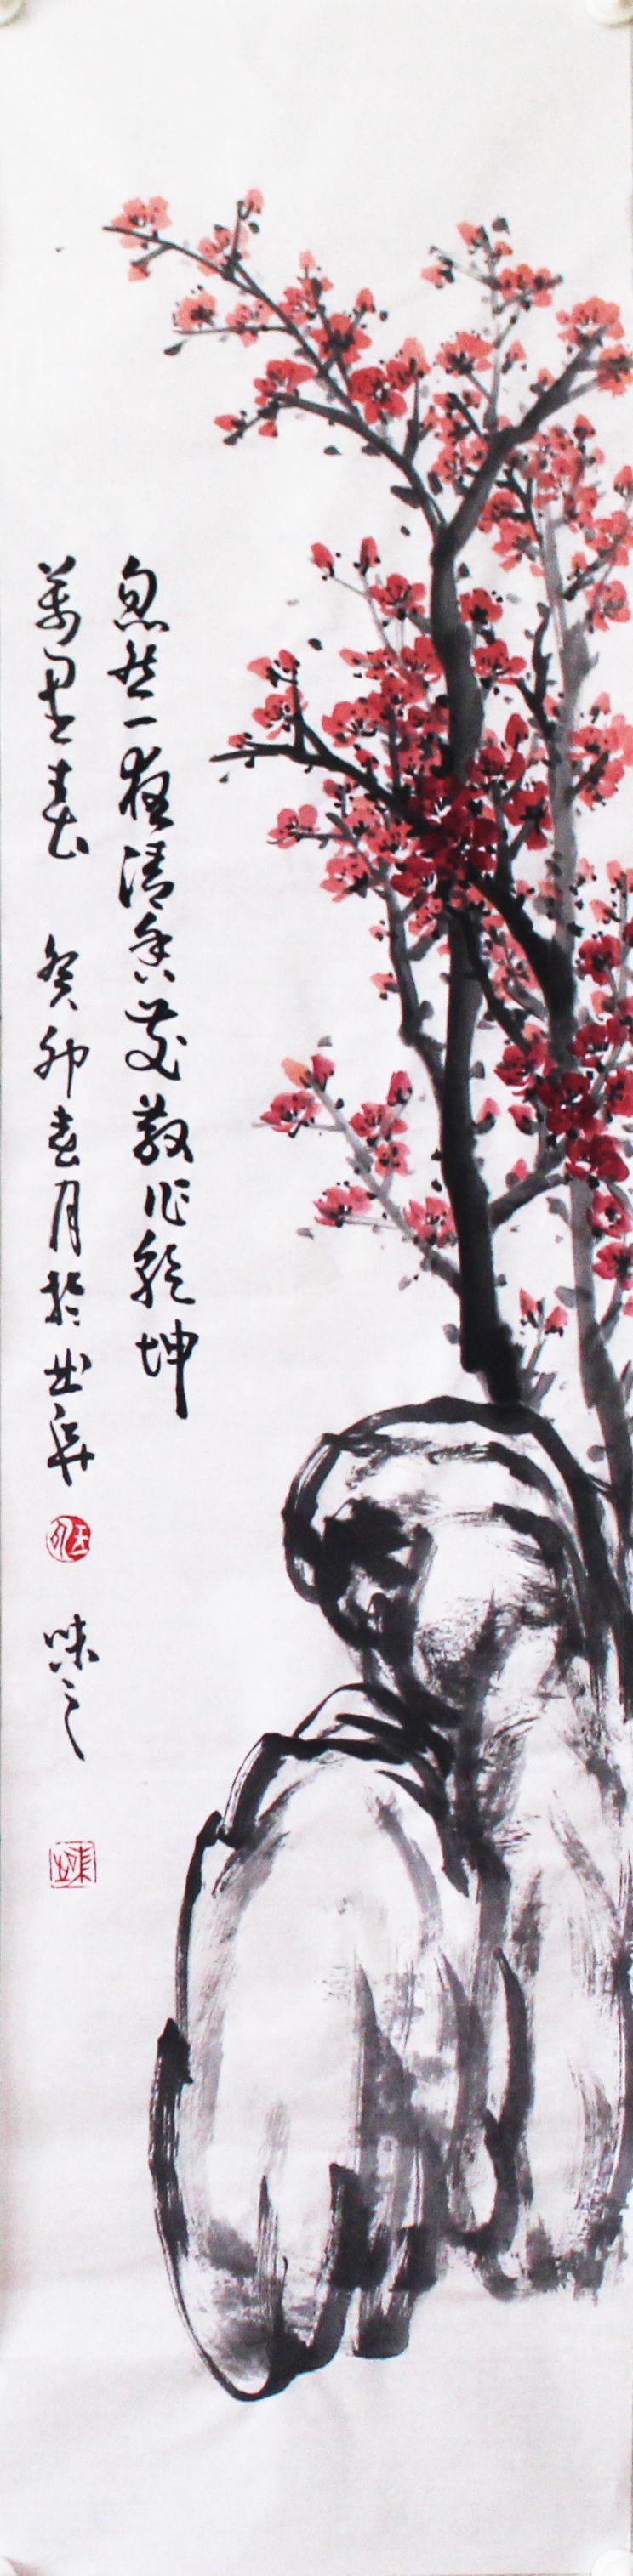 忽然一夜清香發散作乾坤
萬里春 癸卯春月於北京 味之